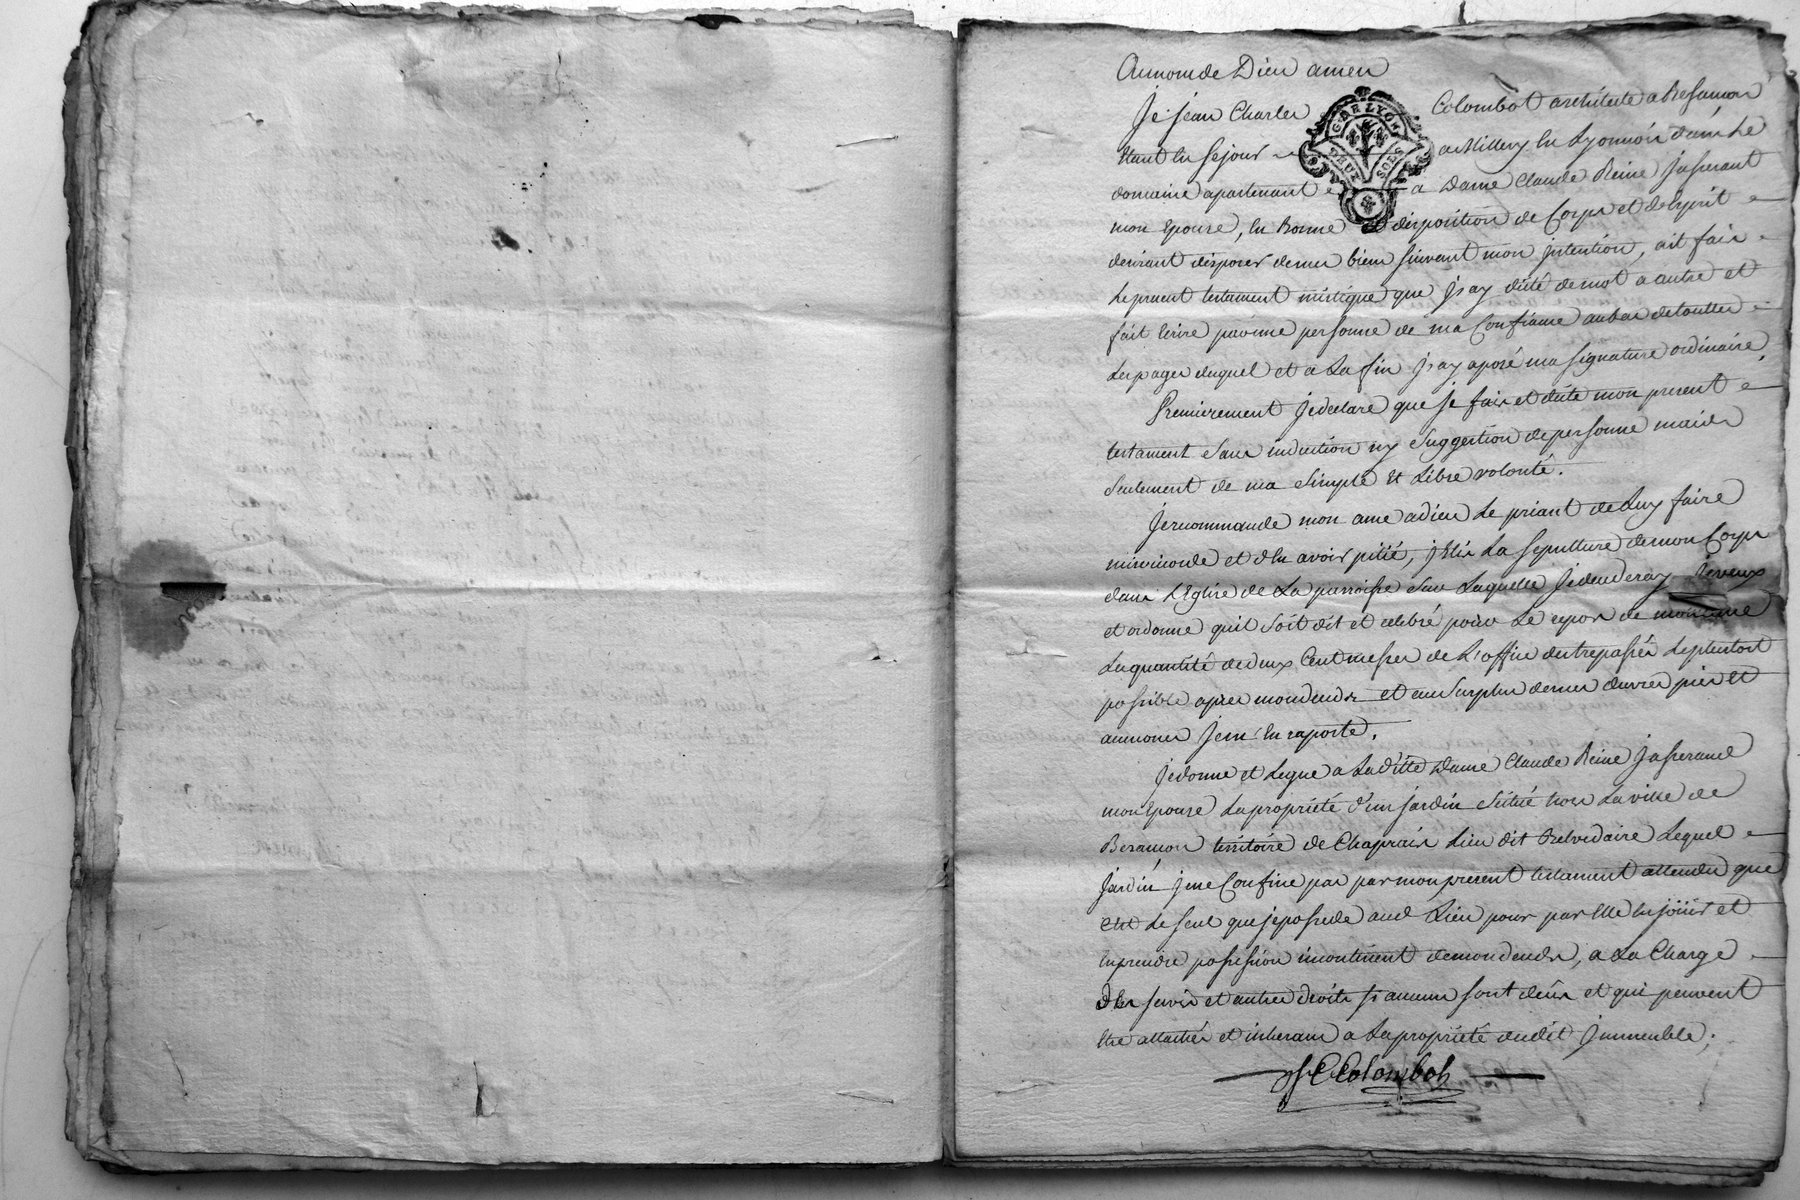 Au nom de Dieu amen
Je jean Charles Colombot architecte a Besancon
GÉN. LYON
DEUX SOLS
étant en sejour a Millery en Lyonnois dans le
domaine apartenant a Dame Claude Reine Jasserant
mon Epouse, en Bonne disposition de Corps et de Esprit
desirant disposer de mes biens suivant mon jntention, ait fais
le present testament mistique que j'ay dicté de mot a autre et
fait ecrire par une personne de ma Confiance au bas de toutes
les pages duquel et a La fin j'ay aposé ma signature ordinaire,
Premierement je declare que je fais et dicte mon present
testament sans induction ny Suggestion de personne mais
Seulement de ma Simple et Libre volonté.
Je recommande mon ame a dieu Le priant de Luy faire
misericorde et d'En avoir pitié, j'Elis La sepulture de mon Corps
dans L'Eglise de La parroisse Sur Laquelle Je decederay Je veux
et ordonne quil Soit dit et celebré pour Le repos de mon ame
La quantité de deux Cent messes de L'office des trepassés Le plustot
possible apres mon deces et au Surplus de mes œuvres pies et
aumones Je m'en raporte.
Je donne et Legue a Laditte Dame Claude Reine Jasserand
mon Epouse La propriété d'un jardin Situé hors La ville de
Besancon territoire de Chaprais Lieu dit Belvedaire Lequel
jardin je ne Confine pas par mon present testament attendu que
c'est Le seul que je possede aud Lieu pour par Elle en joüir et
En prendre possession incontinent de mon deces, a La Charge
d'Es servis et autres droits si aucuns sont deüs et qui peuvent
Etre attachés et inherans a La propriété dudit jmmeuble;
J C Colombot